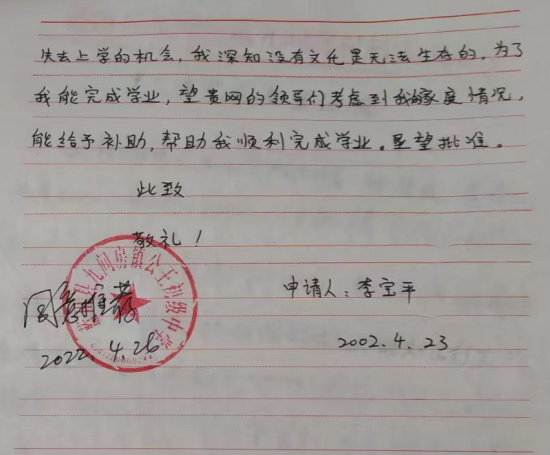 失去上学的机会，我深知没有文化是无法生存的，为了
我能完成学业，望贵网的领导们考虑到我家庭情况，
能给予补助，帮助我顺利完成学业。望批准。
此致
敬礼！
县九间房镇公王初级中学
同意推荐
申请人：李宝平
2022.4.26
2002.4.23